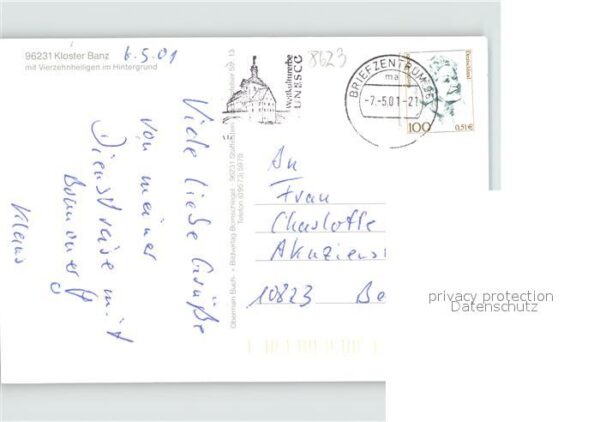 96231 Kloster Banz
mit Vierzehnheiligen im Hintergrund
6.5.01
Viele liebe Grüße
von meiner
Dienstreise mit
Klaus
Obermain Buch- + Bildverlag Bornschlegel · 96231
Telefon (09573) 5978
Weltkulturerbe
UNESCO
8623
BRIEFZENTRUM 96
ma
-7.-5.01-21
Deutschland
100
0,51€
An
Frau
Charlotte
Akazienst
10823 Be
privacy protection
Datenschutz